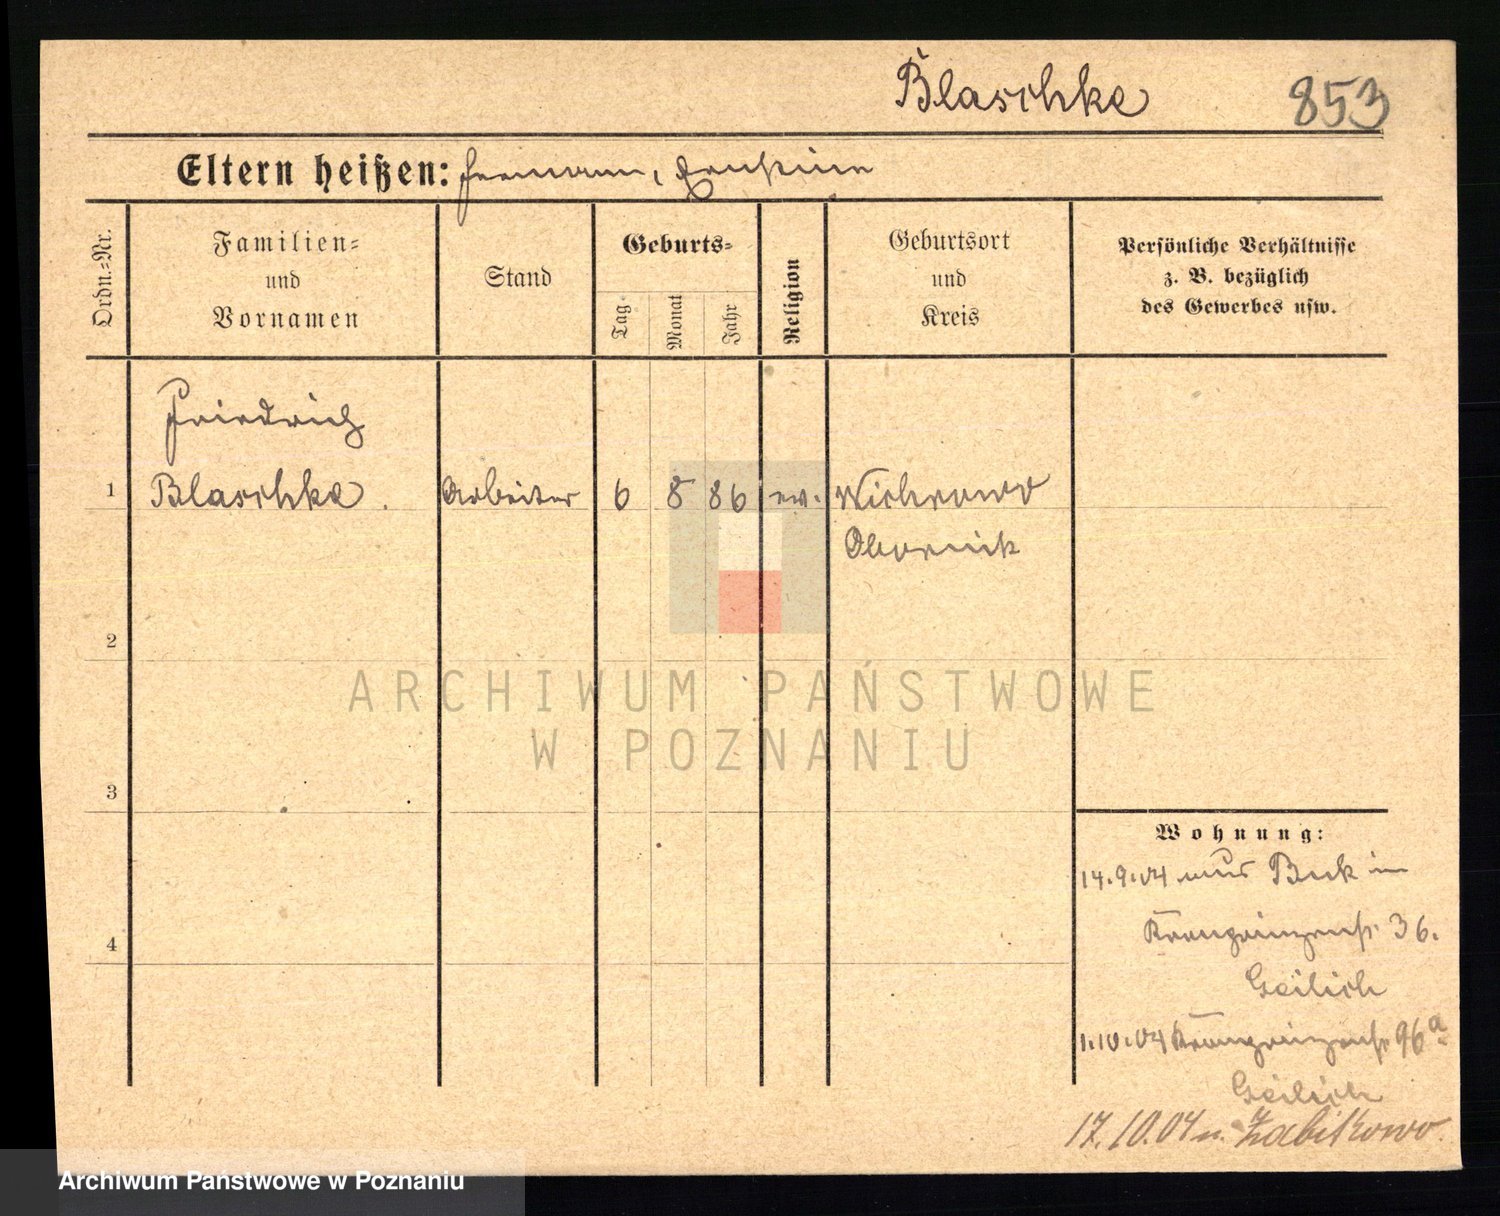 Blaschke 853
Eltern heißen: Hermann, Ernstine
Ordn.-Nr.
Familien-
und
Vornamen
Stand
Geburts-
Tag
Monat
Jahr
Religion
Geburtsort
und
Kreis
Persönliche Verhältnisse
z. B. bezüglich
des Gewerbes usw.
Friedrich
1 Blaschke. Arbeiter 6 8 86 ev. Wichrowo
Obornik
2
3
4
Wohnung:
14.9.04 aus Buk in
Kronprinzenstr. 36.
Geilich
1.10.04 Kronprinzenstr. 96a
Geilich
17.10.04 n. Zabikowo.
ARCHIWUM PAŃSTWOWE
W POZNANIU
Archiwum Państwowe w Poznaniu